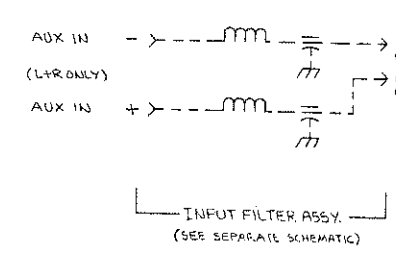 AUX IN -
(L+R ONLY)
AUX IN +
INPUT FILTER ASSY.
(SEE SEPARATE SCHEMATIC)